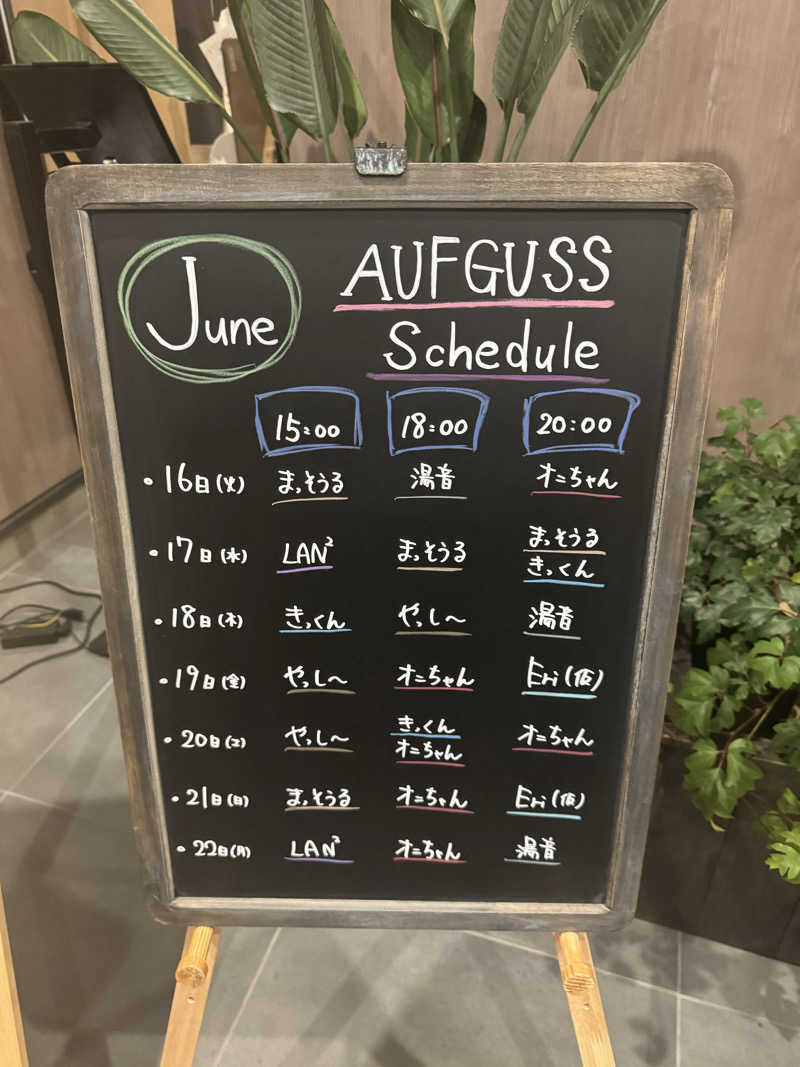 June
AUFGUSS
Schedule
15:00 18:00 20:00
・16日(火) まっそうる 湯音 オニちゃん
・17日(水) LAN² まっそうる まっそうる
きっくん
・18日(木) きっくん やっし〜 湯音
・19日(金) やっし〜 オニちゃん Eri(仮)
・20日(土) やっし〜 きっくん オニちゃん
オニちゃん
・21日(日) まっそうる オニちゃん Eri(仮)
・22日(月) LAN² オニちゃん 湯音